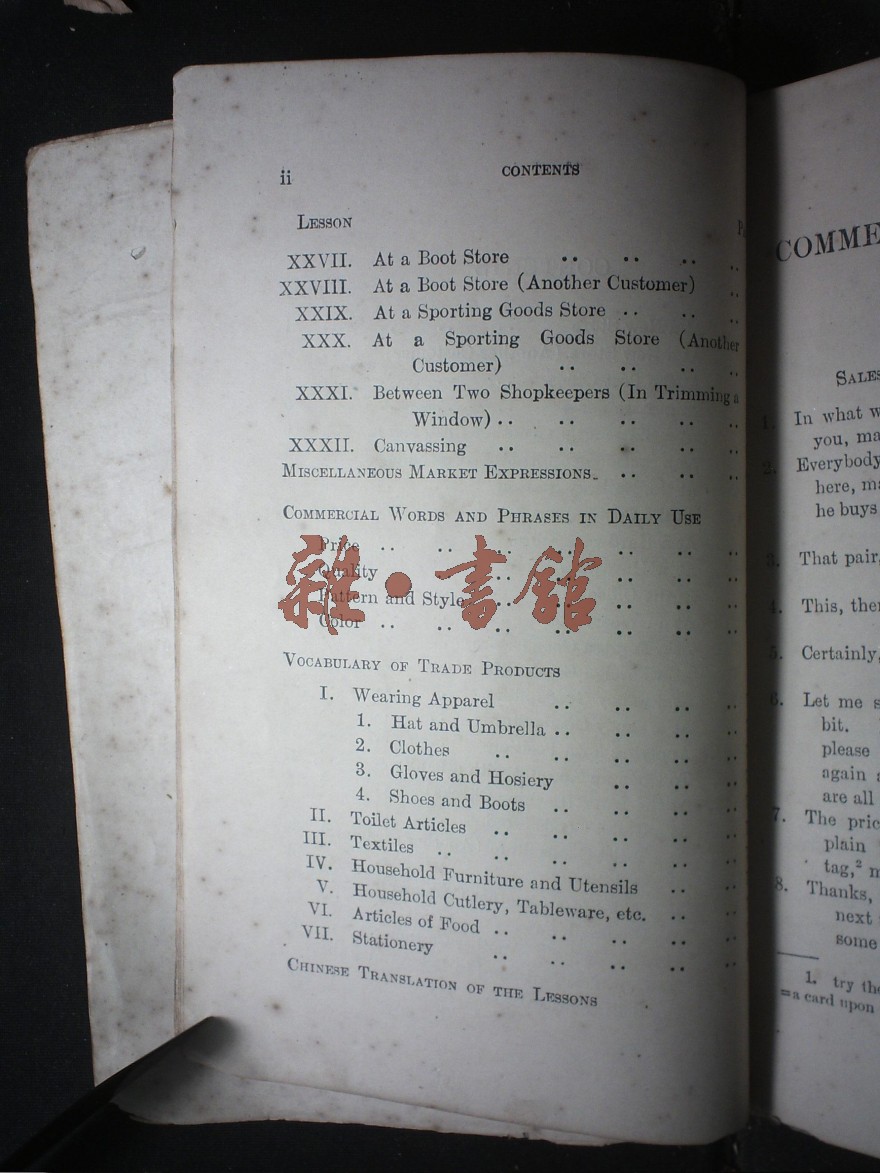 ii CONTENTS
LESSON
XXVII. At a Boot Store .. .. .. ..
XXVIII. At a Boot Store (Another Customer) ..
XXIX. At a Sporting Goods Store .. .. ..
XXX. At a Sporting Goods Store (Another
Customer) .. .. .. ..
XXXI. Between Two Shopkeepers (In Trimming a
Window) .. .. .. .. ..
XXXII. Canvassing .. .. .. .. ..
MISCELLANEOUS MARKET EXPRESSIONS .. .. ..
COMMERCIAL WORDS AND PHRASES IN DAILY USE
Price .. .. .. .. .. .. ..
Quality .. .. .. .. .. ..
Pattern and Style .. .. .. .. ..
Color .. .. .. .. .. .. ..
雜·書館
VOCABULARY OF TRADE PRODUCTS
I. Wearing Apparel .. .. .. ..
1. Hat and Umbrella .. .. .. ..
2. Clothes .. .. .. .. ..
3. Gloves and Hosiery .. .. ..
4. Shoes and Boots .. .. .. ..
II. Toilet Articles .. .. .. .. ..
III. Textiles .. .. .. .. .. ..
IV. Household Furniture and Utensils .. ..
V. Household Cutlery, Tableware, etc. .. ..
VI. Articles of Food .. .. .. .. ..
VII. Stationery .. .. .. .. ..
CHINESE TRANSLATION OF THE LESSONS
COMME
SALES
In what w
you, ma
Everybody
here, ma
he buys
That pair,
This, ther
Certainly,
Let me s
bit.
please
again
are all
7. The pric
plain
tag,² m
8. Thanks,
next
some
1. try the
=a card upon